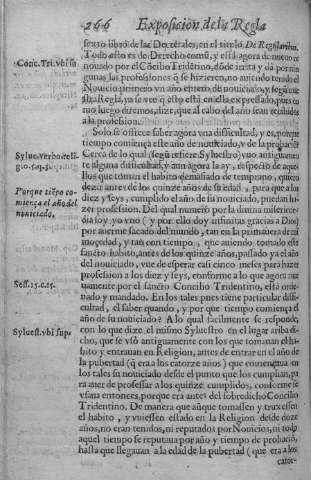 266 Exposicion de la Regla
sexto libro de las Decretales, en el titulo De Regularibus.
Todo esto es de Derecho comũ, y está agora de nueuo re
Conc. Tri. vbi su
nouado por el Cõcilio Tridẽtino, dõde irrita y dá por nin
gunas las professiones q̃ se hizieren, no auiendo tenido el
Nouicio primero vn año entero de nouiciado, y segũ nue
stra Regla, ya se vee q̃ esto està en ella expressado, pues co
mo luego diremos, dize, que al cabo del año sean recibidos
a la profession.
Solo se ofrece saber agora vna difficultad, y es, porque
tiempo comiença este año de nouiciado, y de la probaciõ
Sylu. verbo reli
gio. 5. q. 5.
Cerca de lo qual (segũ refiere Syluestro) vuo antiguamẽ
te alguna difficultad, y aun agora la ay, respecto de aque-
llos que toman el habito demasiado de temprano, quiero
Porque tiẽpo co
miença el año del
nouiciado.
dezir antes de los quinze años de su edad, para que a los
diez y seys, cumplido el año de su nouiciado, puedan ha-
zer profession. Del qual numero por la diuina misericor-
dia soy yo vno (y por ello doy infinitas gracias a Dios)
por auerme sacado del mundo, tan en la primauera de mi
mocedad, y tan con tiempo, que auiendo tomado este
sancto habito, antes de los quinze años, passado ya el año
del nouiciado, vue de esperar casi cinco meses para hazer
profession a los diez y seys, conforme a lo que agora nue
Sess. 25. c. 15.
uamente por el sancto Concilio Tridentino, está orde-
nado y mandado. En los tales pues tiene particular diffi-
cultad, el saber quando, y por que tiempo comiença el
año de su nouiciado? A lo qual facilmente se responde,
Syluest. vbi sup.
con lo que dize el mismo Syluestro en el lugar arriba di-
cho, que se vsò antiguamente con los que tomauan el ha-
bito, y entrauan en Religion, antes de entrar en el año de
la pubertad (q̃ era a los catorze años) que començaua en
los tales su nouiciado desde el punto que los cumplian, pa
ra auer de professar a los quinze cumplidos, conforme se
vsaua entonces, porque era antes del sobredicho Concilio
Tridentino. De manera que aũque tomassen y truxessen
el habito, y vuiessen estado en la Religion desde doze
años, no eran tenidos, ni reputados por Nouicios, ni todo
aquel tiempo se reputaua por año y tiempo de probaciõ,
hasta que llegauan a la edad de la pubertad (que era a los
cator-